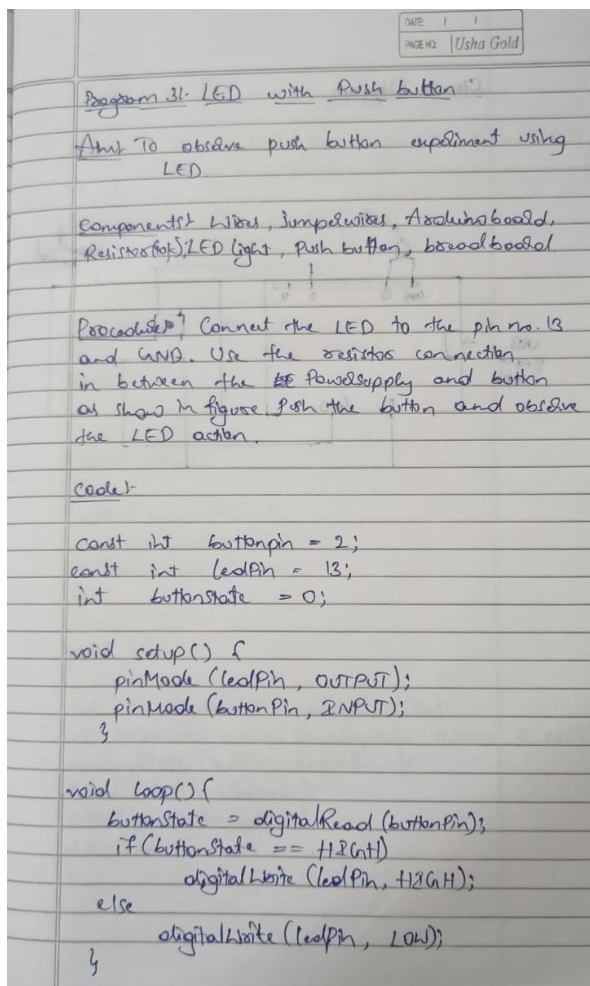 DATE: / /
PAGE NO: Usha Gold
Program 3:- LED with Push button
Aim:- To observe push button expeliment using
LED
Components:- Wires, Jumperwires, Arduino board,
Resistor(10k), LED light, Push button, breadboard.
Procedure:- Connect the LED to the pin no. 13
and GND. Use the resistor connection
in between the Powersupply and button
as show in figure. Push the button and observe
the LED action.
Code:-
const int buttonpin = 2;
const int ledPin = 13;
int buttonState = 0;
void setup() {
pinMode (ledPin, OUTPUT);
pinMode (buttonPin, INPUT);
}
void loop() {
buttonState = digitalRead (buttonPin);
if (buttonState == HIGH)
digitalWrite (ledPin, HIGH);
else
digitalWrite (ledPin, LOW);
}